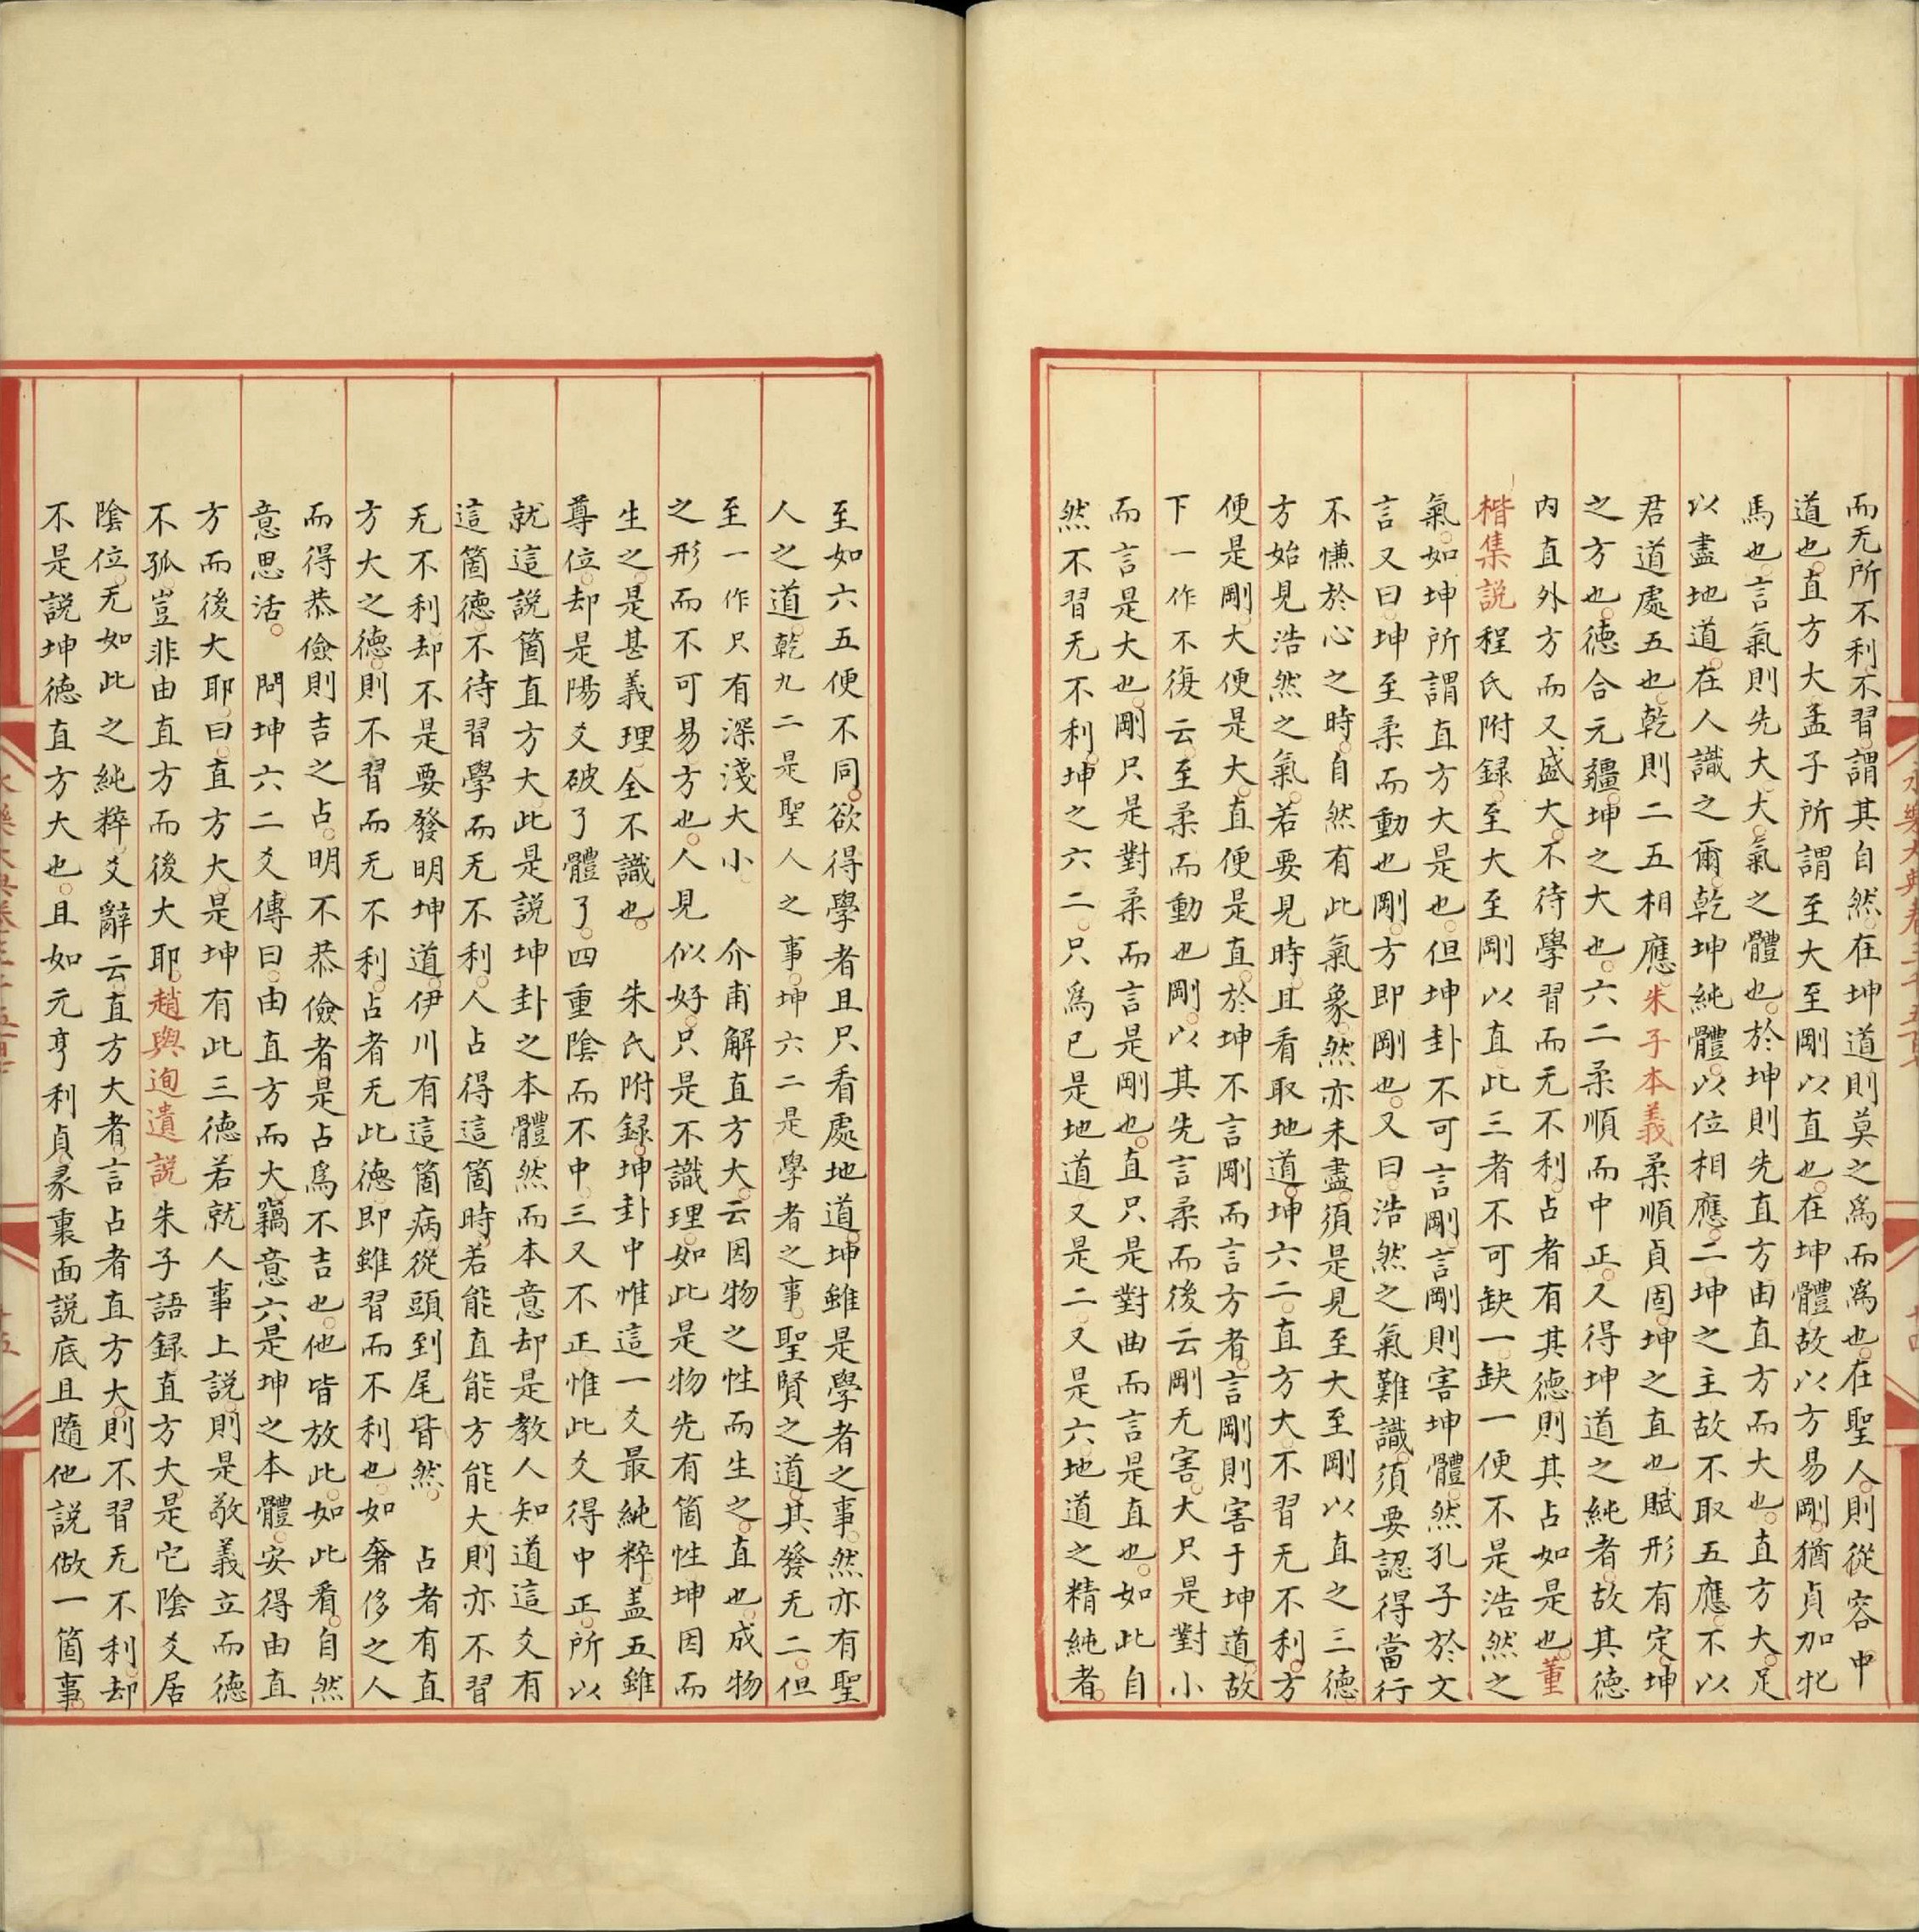 而无所不利不習謂其自然在坤道則莫之爲而爲也在聖人則從容中
道也直方大孟子所謂至大至剛以直也在坤體故以方易剛猶貞加牝
馬也言氣則先大大氣之體也於坤則先直方由直方而大也直方大足
以盡地道在人識之爾乾坤純體以位相應二坤之主故不取五應不以
君道處五也乾則二五相應朱子本義柔順貞固坤之直也賦形有定坤
之方也德合无疆坤之大也六二柔順而中正又得坤道之純者故其德
內直外方而又盛大不待學習而无不利占者有其德則其占如是也董
楷集說程氏附録至大至剛以直此三者不可缺一缺一便不是浩然之
氣如坤所謂直方大是也但坤卦不可言剛言剛則害坤體然孔子於文
言又曰坤至柔而動也剛方即剛也又曰浩然之氣難識須要認得當行
不慊於心之時自然有此氣象然亦未盡須是見至大至剛以直之三德
方始見浩然之氣若要見時且看取地道坤六二直方大不習无不利方
便是剛大便是大直便是直於坤不言剛而言方者言剛則害于坤道故
下一作不復云至柔而動也剛以其先言柔而後云剛无害大只是對小
而言是大也剛只是對柔而言是剛也直只是對曲而言是直也如此自
然不習无不利坤之六二只爲已是地道又是二又是六地道之精純者
至如六五便不同欲得學者且只看處地道坤雖是學者之事然亦有聖
人之道乾九二是聖人之事坤六二是學者之事聖賢之道其發无二但
至一作只有深淺大小　介甫解直方大云因物之性而生之直也成物
之形而不可易方也人見似好只是不識理如此是物先有箇性坤因而
生之是甚義理全不識也　朱氏附録坤卦中惟這一爻最純粹盖五雖
尊位却是陽爻破了體了四重陰而不中三又不正惟此爻得中正所以
就這說箇直方大此是說坤卦之本體然而本意却是教人知道這爻有
這箇德不待習學而无不利人占得這箇時若能直能方能大則亦不習
无不利却不是要發明坤道伊川有這箇病從頭到尾皆然　占者有直
方大之德則不習而无不利占者无此德即雖習而不利也如奢侈之人
而得恭儉則吉之占明不恭儉者是占爲不吉也他皆放此如此看自然
意思活　問坤六二爻傳曰由直方而大竊意六是坤之本體安得由直
方而後大耶曰直方大是坤有此三德若就人事上說則是敬義立而德
不孤豈非由直方而後大耶趙與迿遺說朱子語録直方大是它陰爻居
陰位无如此之純粹爻辭云直方大者言占者直方大則不習无不利却
不是說坤德直方大也且如元亨利貞彖裏面說底且隨他說做一箇事